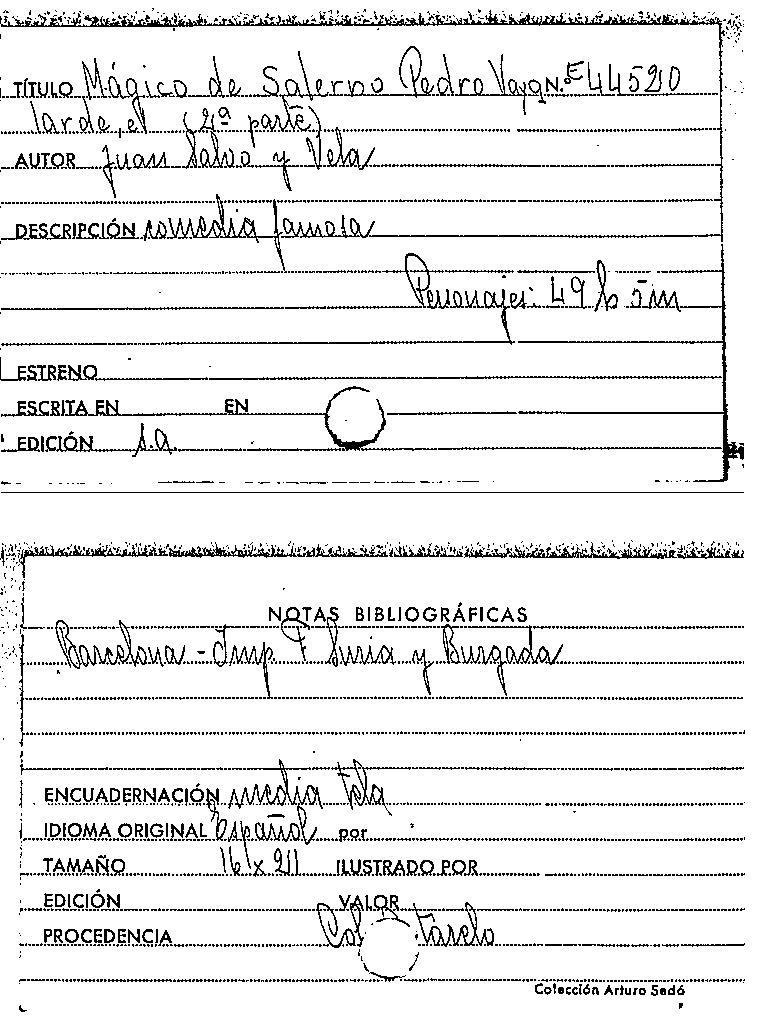 TÍTULO Mágico de Salerno Pedro Vaya N.º E44520
larde, el (2ª parte)
AUTOR Juan Salvo y Vela
DESCRIPCIÓN comedia famosa
Personajes: 49 h 5 m
ESTRENO
ESCRITA EN EN
EDICIÓN s.a.
NOTAS BIBLIOGRÁFICAS
Barcelona - Imp. F Suria y Burgada
ENCUADERNACIÓN media tela
IDIOMA ORIGINAL español por
TAMAÑO 16 x 211 ILUSTRADO POR
EDICIÓN VALOR
PROCEDENCIA Col tarelo
Colección Arturo Sedó